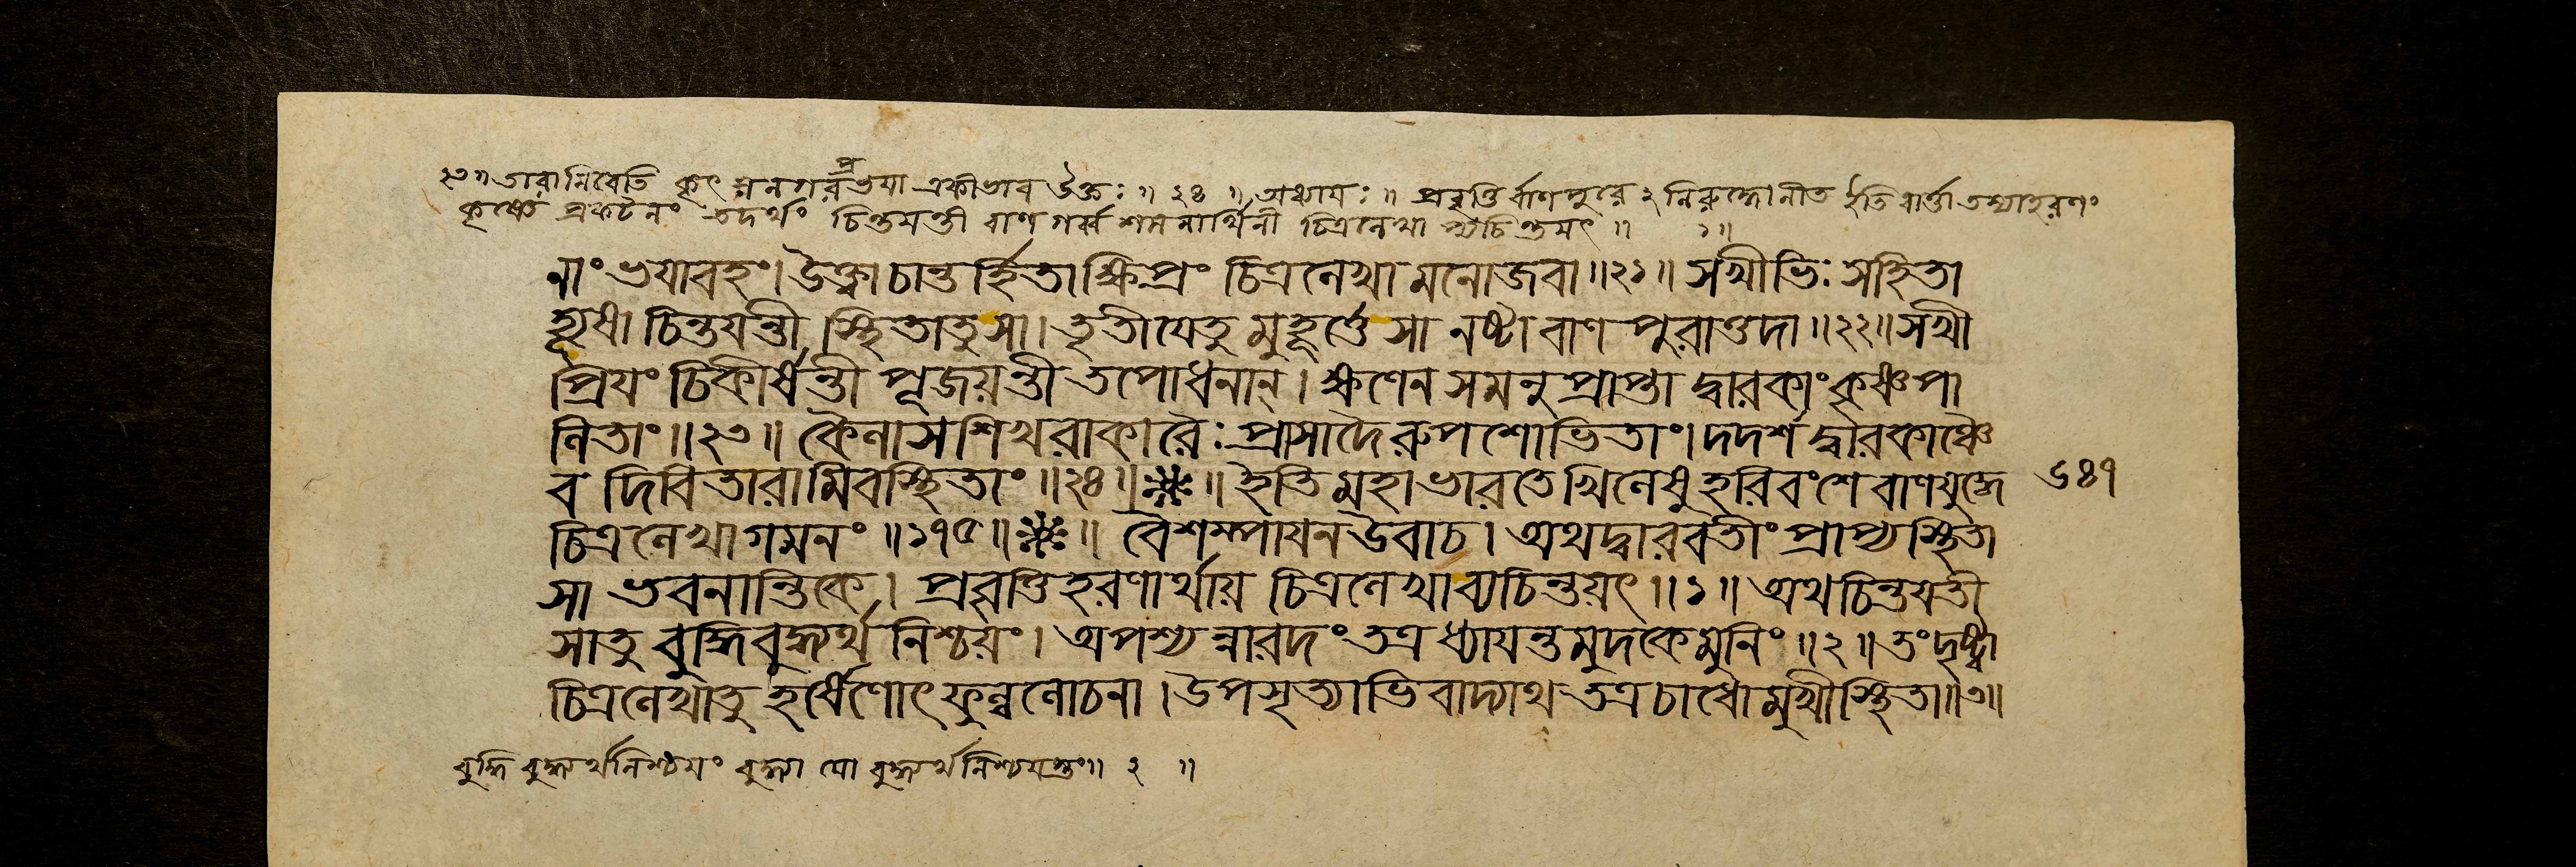 ২৩॥ তারামিবেতি কৃৎস্ননগরপ্রভযা একীভাব উক্তঃ॥ ২৪ ॥ অথাযঃ॥ প্রবৃত্তির্বাণপুরে ২নিরুদ্ধোনীত ইতিবার্ত্তা তস্যাহরণং
কৃষ্ণে প্রকটনং তদর্থং চিন্তযন্তী বাণ গর্ব্ব শমনার্থিনী চিত্রলেখা ব্যচিন্তযৎ॥ ১॥
নাং ভযাবহং। উক্ত্বাচান্তর্হিতাক্ষিপ্রং চিত্রলেখা মনোজবা॥২১॥ সখীভিঃ সহিতা
হ্যূষা চিন্তযন্তী স্থিতাতুসা। তৃতীযেতু মুহূর্ত্তে সা নষ্টা বাণ পুরাত্তদা॥২২॥ সখী
প্রিযং চিকীর্ষন্তী পূজয়ন্তী তপোধনান্। ক্ষণেন সমনুপ্রাপ্তা দ্বারকাং কৃষ্ণপা
লিতাং॥২৩॥ কৈলাসশিখরাকারৈঃ প্রাসাদৈরুপশোভিতাং। দদর্শ দ্বারকাঞ্চৈ
ব দিবিতারামিবস্থিতাং॥২৪॥❈॥ ইতি মহাভারতেখিলেষু হরিবংশে বাণযুদ্ধে ৬৪৭
চিত্রলেখাগমনং॥১৭৫॥❈॥ বৈশম্পাযন উবাচ। অথদ্বারবতীং প্রাপ্যস্থিতা
সা ভবনান্তিকে। প্রবৃত্তিহরণার্থায় চিত্রলেখাব্যচিন্তয়ৎ॥১॥ অথচিন্তযতী
সাতু বুদ্ধিবুদ্ধ্যর্থ নিশ্চয়ং। অপশ্যন্নারদং তত্র ধ্যাযন্তমুদকেমুনিং॥২॥ তংদৃষ্ট্বা
চিত্রলেখাতু হর্ষেণোৎফুল্ললোচনা। উপসৃত্যাভিবাদ্যাথ তত্রচাধোমুখীস্থিতা॥৩॥
বুদ্ধি বুদ্ধ্যর্থনিশ্চযং বুদ্ধ্যা যো বুদ্ধ্যর্থনিশ্চযস্তং॥ ২ ॥